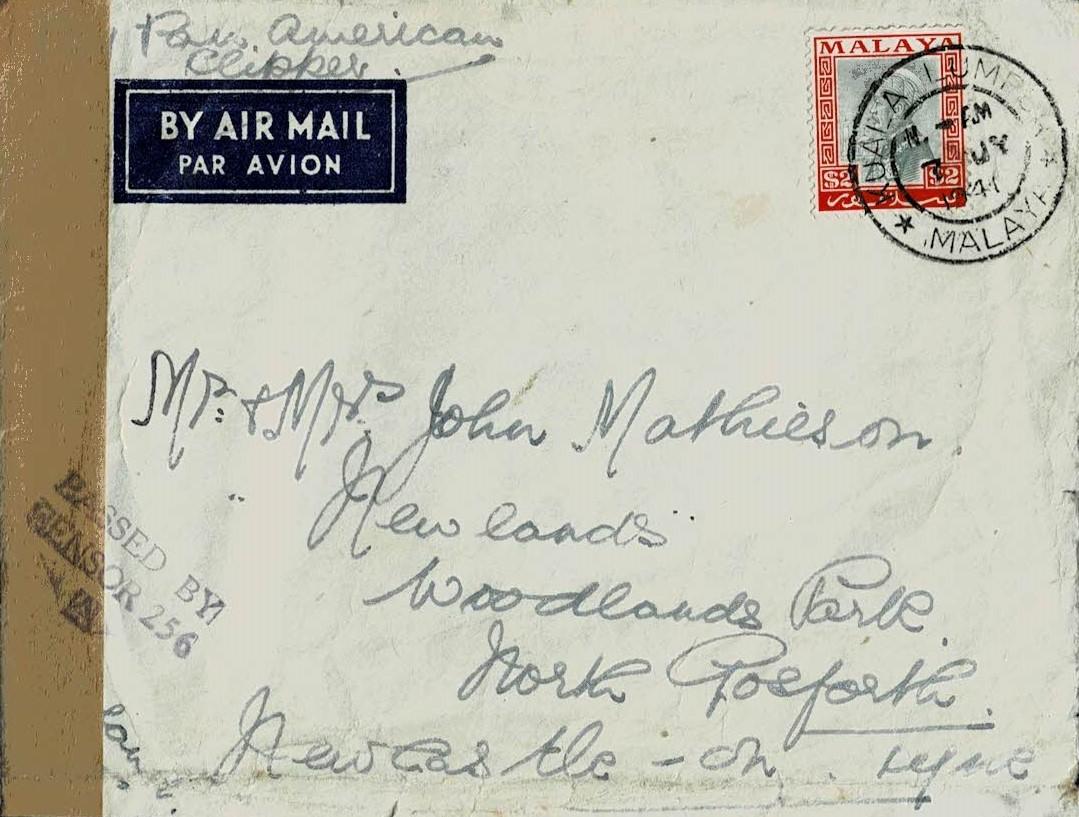 Pan American
Clipper.
BY AIR MAIL
PAR AVION
MALAYA
$2 $2
سلاڠور
KUALA LUMPUR
PM
1941
MALAYA
Mr. & Mrs. John Mathieson.
"Newlands"
Woodlands Park.
North Gosforth.
Newcastle-on. Tyne
PASSED BY
CENSOR 256